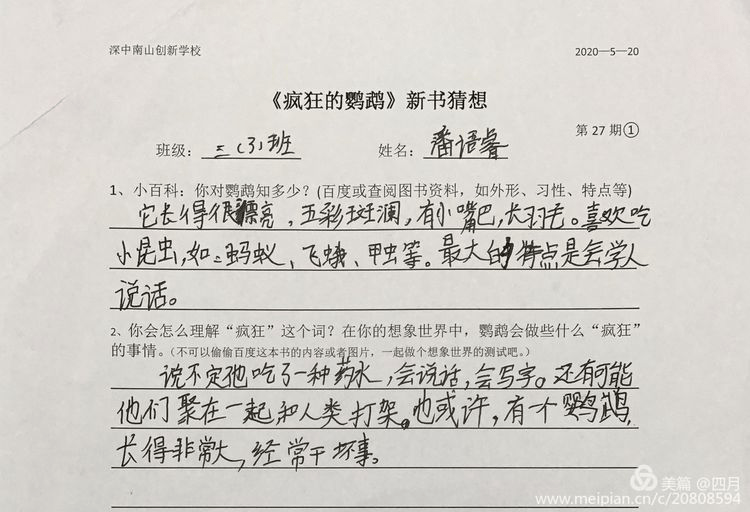 深中南山创新学校 2020—5—20
《疯狂的鹦鹉》新书猜想
第 27 期①
班级：三(3)班 姓名：潘语睿
1、小百科：你对鹦鹉知多少？(百度或查阅图书资料，如外形、习性、特点等)
它长得很漂亮，五彩斑澜，有小嘴巴，长羽毛。喜欢吃
小昆虫，如：蚂蚁、飞蛾、甲虫等。最大的特点是会学人
说话。
2、你会怎么理解“疯狂”这个词？在你的想象世界中，鹦鹉会做些什么“疯狂”
的事情。（不可以偷偷百度这本书的内容或者图片，一起做个想象世界的测试吧。）
说不定他吃了一种药水，会说话，会写字。还有可能
他们聚在一起和人类打架。也或许，有个鹦鹉，
长得非常大，经常干坏事。
美篇 @四月
www.meipian.cn/c/20808594